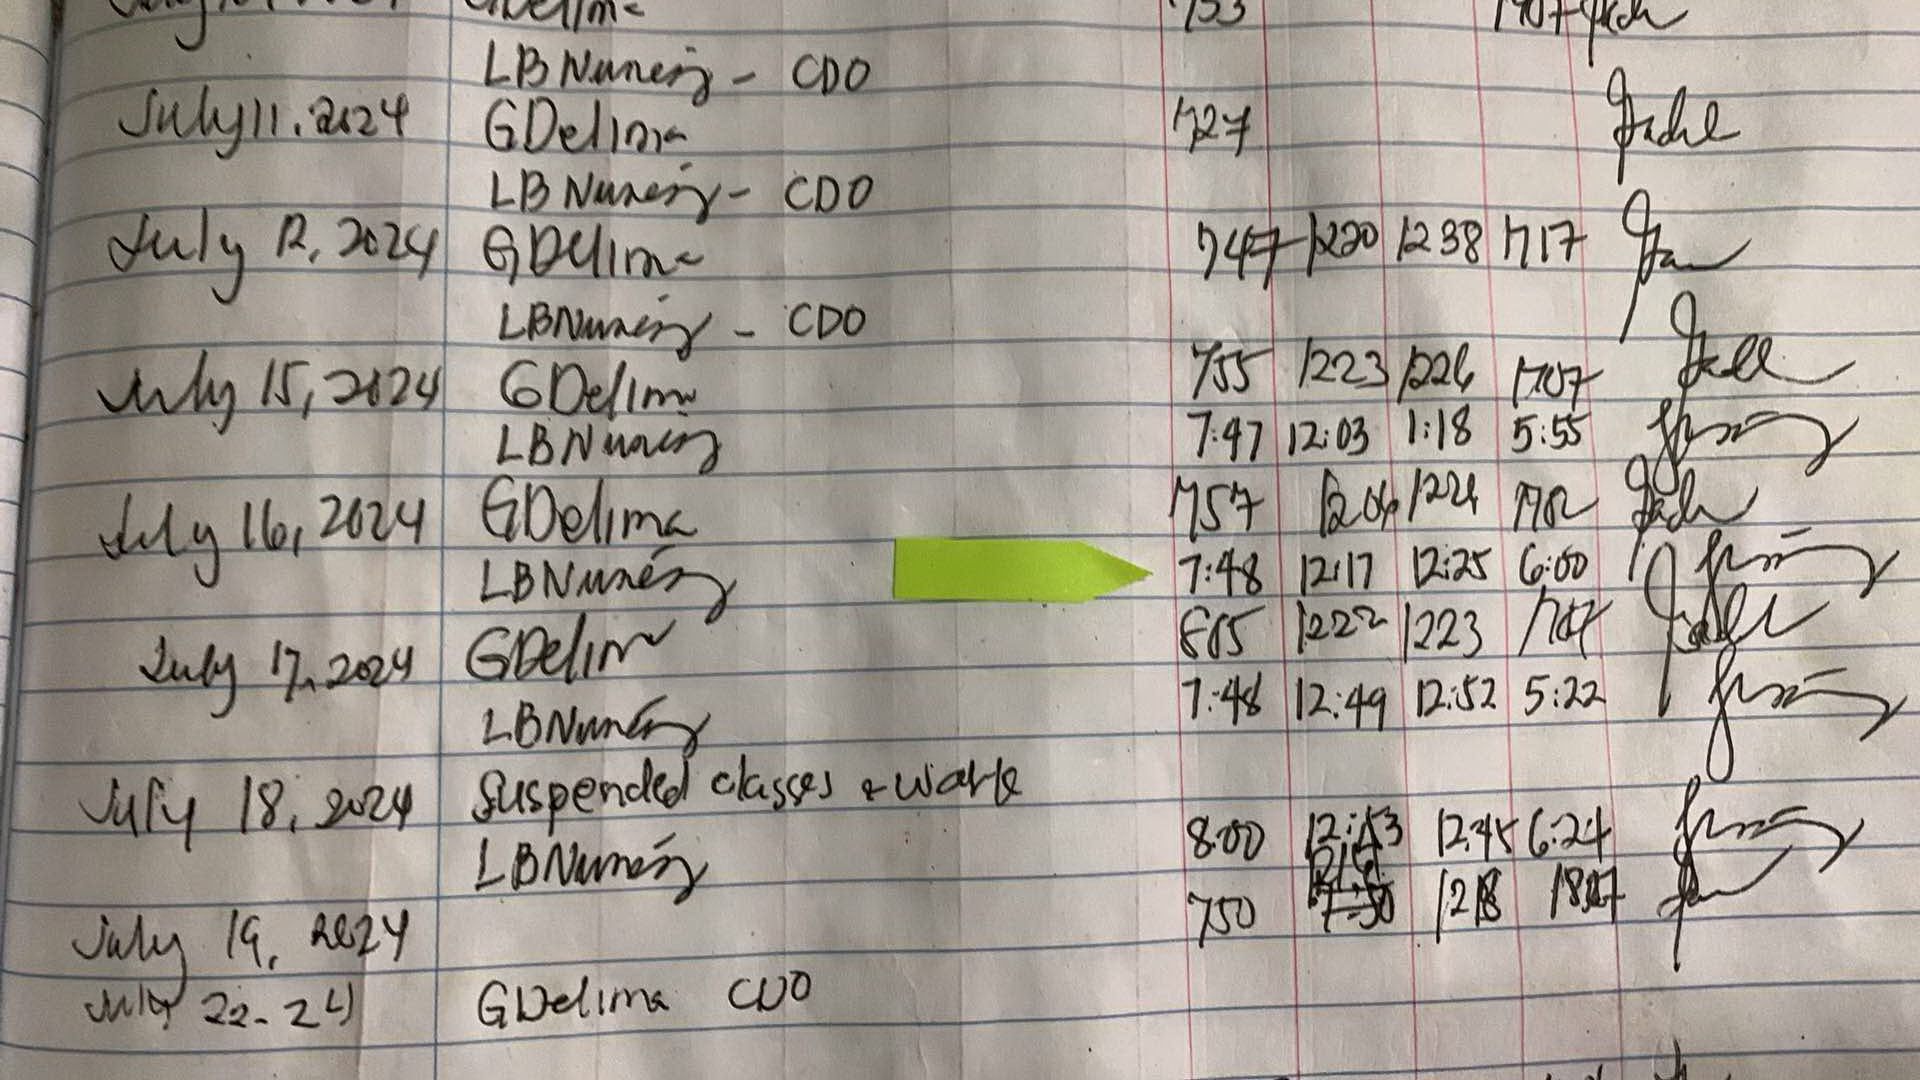 GDelima 753 1707
LBNuñez - CDO
July 11, 2024 GDelima 727
LBNuñez - CDO
July 12, 2024 GDelima 747 1220 1238 1717
LBNuñez - CDO
July 15, 2024 GDelima 755 1223 1226 1707
LBNuñez 7:47 12:03 1:18 5:55
July 16, 2024 GDelima 757 1206 1224 1702
LBNuñez 7:48 12:17 12:25 6:00
July 17, 2024 GDelima 805 1222 1223 1707
LBNuñez 7:48 12:49 12:52 5:22
July 18, 2024 Suspended classes & work
LBNuñez 8:00 12:43 12:45 6:24
July 19, 2024 750 1218
July 22-24 GDelima CDO